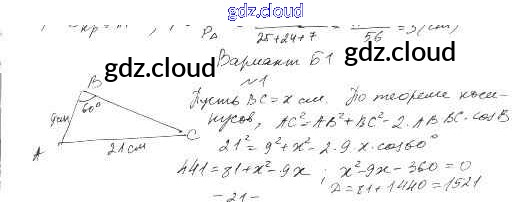 gdz.cloud
25+24+7
56
= 3 (см)
Вариант Б1
gdz.cloud
gdz.cloud
№1
B
60°
9см
A
21 см
C
Пусть BC = x см. По теореме коси-
нусов, AC² = AB² + BC² - 2·AB·BC·cosB
21² = 9² + x² - 2·9·x·cos60°
441 = 81 + x² - 9x ; x² - 9x - 360 = 0
D = 81 + 1440 = 1521
- 21 -